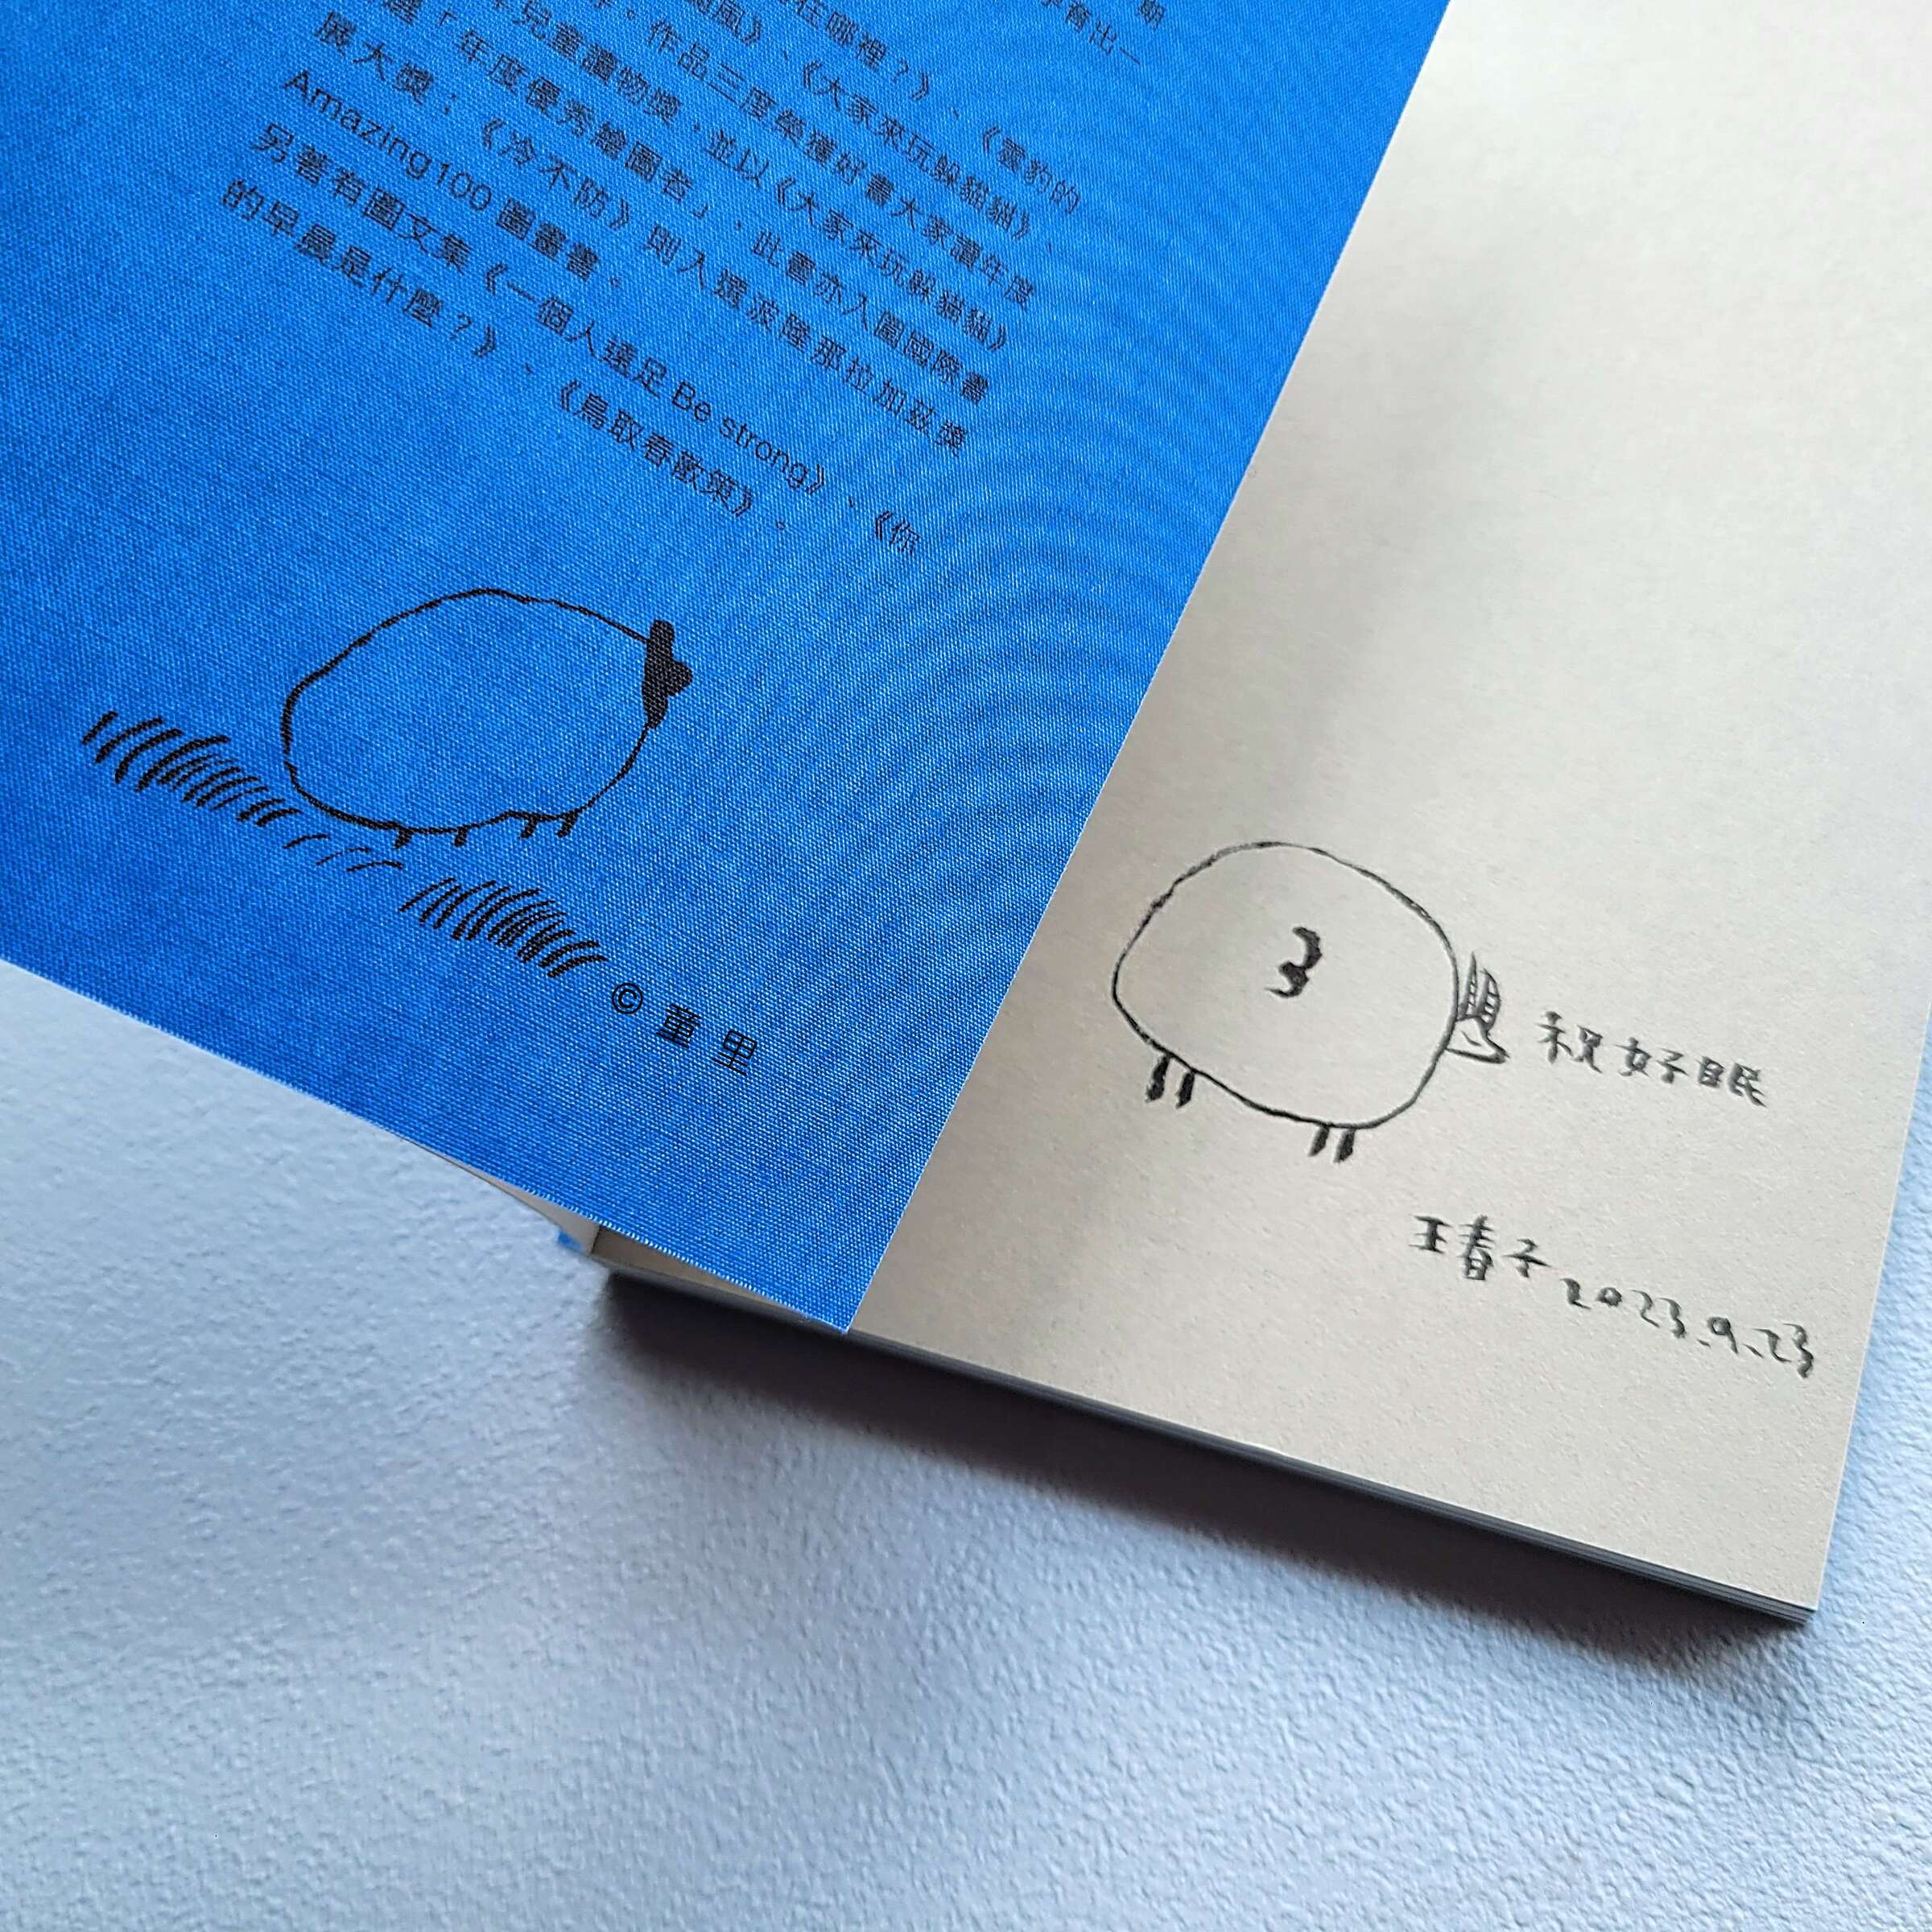 期
孕育出一
在哪裡？》、《雲豹的
颱風》、《大家來玩躲貓貓》、
等。作品三度榮獲好書大家讀年度
年兒童讀物獎，並以《大家來玩躲貓貓》
「年度優秀繪圖者」，此書亦入圍國際書
展大獎；《冷不防》則入選波隆那拉加茲獎
Amazing 100 圖畫書。
另著有圖文集《一個人遠足 Be strong》、《你
的早晨是什麼？》、《鳥取春散策》。
© 童里
3
祝好眠
王春子 2023.9.23